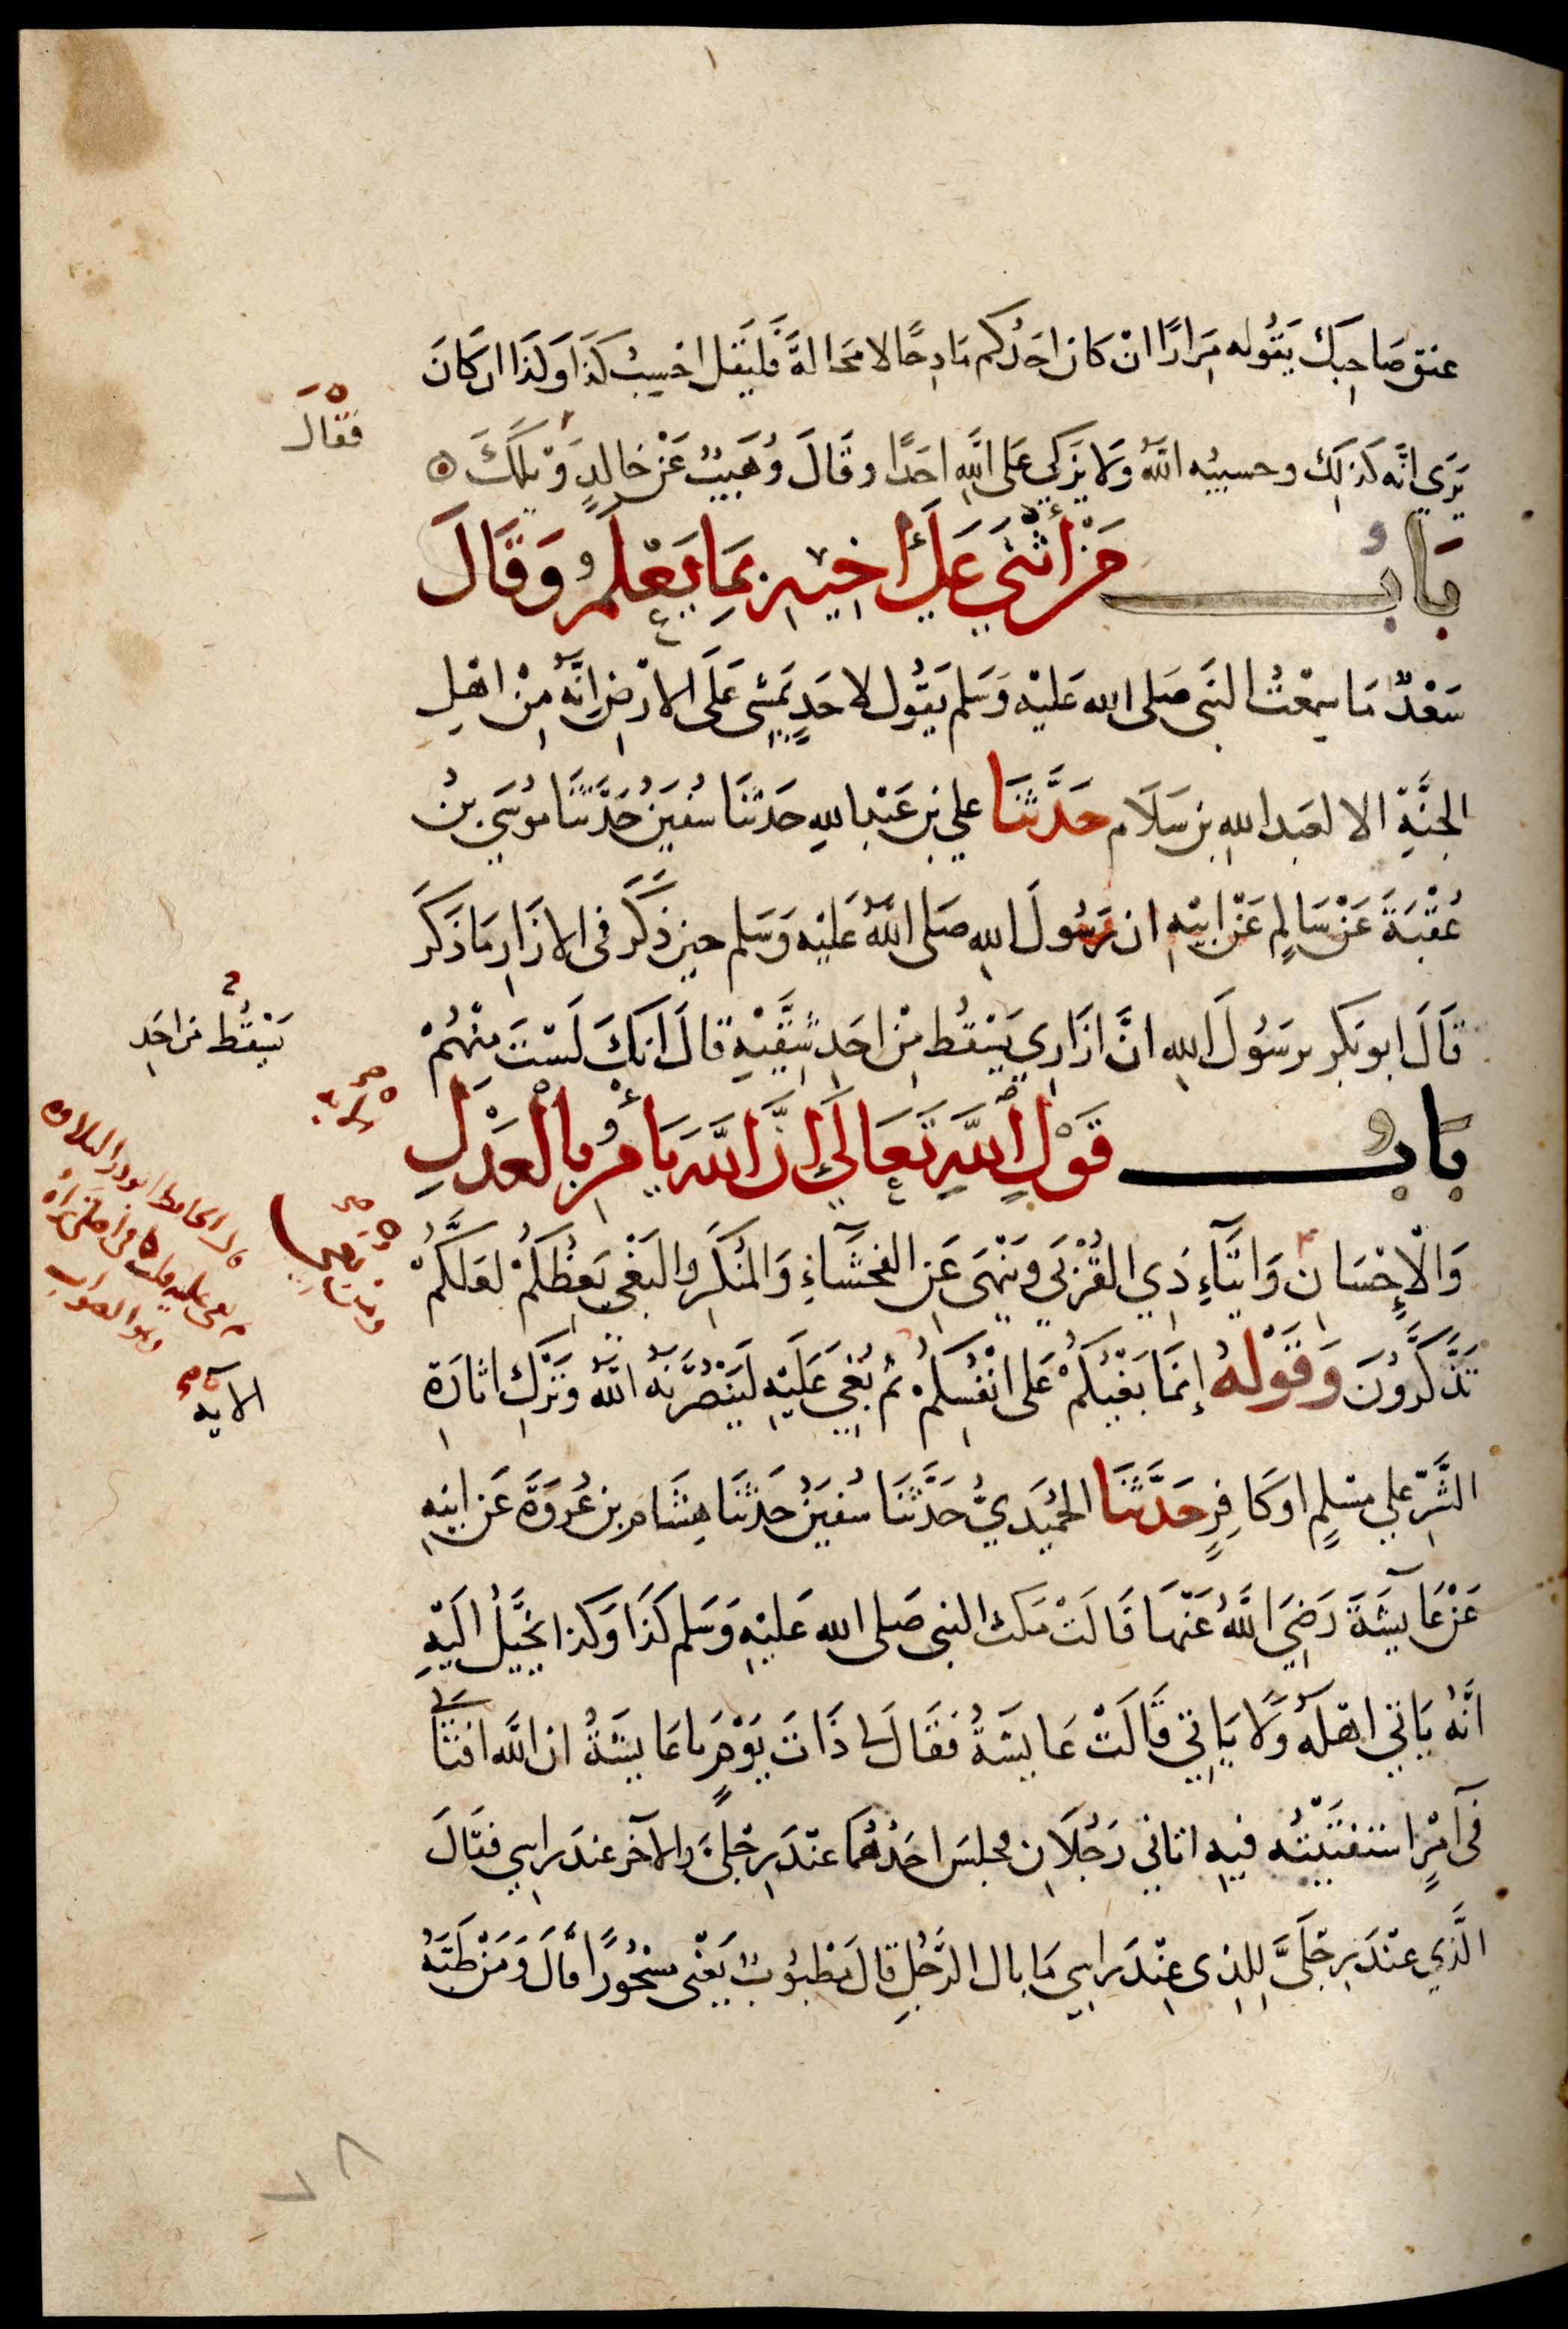 عنق صَاحِبك يَقُوله مِرَارًا انْ كان احَدُكم مَادِحًا لا مَحَالةَ فَليَقل احْسِبُ كَذَا وَكَذَا ان كَانَ
يُرَي انَّه كَذلِكَ وحسيبُه اللَّهُ وَلا يزَكي عَلى اللَّهِ احَدًا وقَالَ وُهَيبٌ عَنْ خَالِدٍ وَيْلَكَ
فَقَالَ
بَابُ مَنْ أثْنَي عَلَي أخِيهِ بِمَا يَعْلَمُ وَقَالَ
سَعْدٌ مَا سَمِعْتُ النَبي صَلى الله عَليْه وَسَلم يَقُول لاحَدٍ يَمْشِي عَلَى الارْضِ انَّهُ مِنْ اهْلِ
الجنَّةِ الا لعَبد اللهِ بنِ سَلَام حَدَّثنَا علي بن عَبْد اللهِ حَدثنَا سُفيَنُ حَدَّثنَا مُوسَي بنُ
عُقْبَةَ عَنْ سَالِمٍ عَنْ ابيْهِ ان رَسُولَ اللهِ صَلى اللَّهُ عَليْه وَسَلم حين ذَكَرَ في الازَارِ مَا ذَكَرَ
قَالَ ابو بَكرٍ يرسُولَ اللهِ انَّ ازَارِي يَسْقُط مِنْ احَدِ شِقَّيْهِ قالَ انكَ لَسْتَ مِنْهُمْ
يَسْقُط من احَدِ
بَابُ قَوْلِ اللَّهِ تَعَالَي إنَّ اللَّهَ يَأمُرُ بِالْعَدْلِ
وَالْإِحْسَانِ وَايتَآءِ ذِي القُرْبَي وَيَنْهَى عَنِ الفَحْشَآءِ وَالمُنْكَرِ وَالبَغْيِ يَعِظُكُمْ لعَلَّكُمْ
تَذَّكَّرُونَ وَقَوْلهُ إنمَا بَغْيُكُمْ عَلى انْفُسِكُمْ ثُمَّ بُغِيَ عَلَيْهِ لَيَنْصُرَنَّهُ اللَّهُ وَتَرْكِ اثارَةِ
الايه
الشَّرِّ عَلي مسْلمٍ اوكَافِرٍ حَدَّثَنَا الحُمَيْدَيُّ حَدَّثنَا سُفيَنُ حَدَّثنَا هِشَام بن عُروَةَ عَن ابيهِ
عَنْ عَآيشَةَ رَضِيَ اللَّهُ عَنْهَا قَالَتْ مَكث النبي صَلى الله عَليْهِ وَسَلم كَذَا وَكَذا يُخَيَّلُ الَيْهِ
انَّهُ يَاتي اهْلَهُ وَلَا يَاتِي قَالَتْ عَايشَةُ فَقَالَ لي ذَاتَ يَوْمٍ يا عَايشَةُ ان اللَّه افتانِي
في أمْرٍ استَفْتَيْتُه فيهِ اتاني رَجُلَانِ فجلسَ احَدُهُمَا عنْدَ رِجْليَّ والآخَر عندَ رَاسي فقَالَ
الَّذي عنْدَ رِجْلَيَّ للِذي عِنْدَ رَاسي مَا بال الرَّجُلِ قالَ مَطْبُوبٌ يَعْني مسْحُورًا قالَ وَمَنْ طَبَّهُ
٧٨